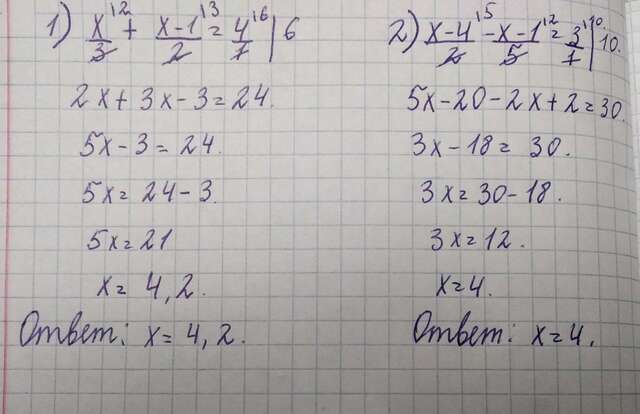 1) x/3 \2 + x-1/2 \3 = 4/1 \6 | 6
2x + 3x - 3 = 24.
5x - 3 = 24.
5x = 24 - 3.
5x = 21
x = 4,2.
Ответ: x = 4,2.
2) x-4/2 \5 - x-1/5 \2 = 3/1 \10. | 10.
5x - 20 - 2x + 2 = 30.
3x - 18 = 30.
3x = 30 - 18.
3x = 12.
x = 4.
Ответ: x = 4.